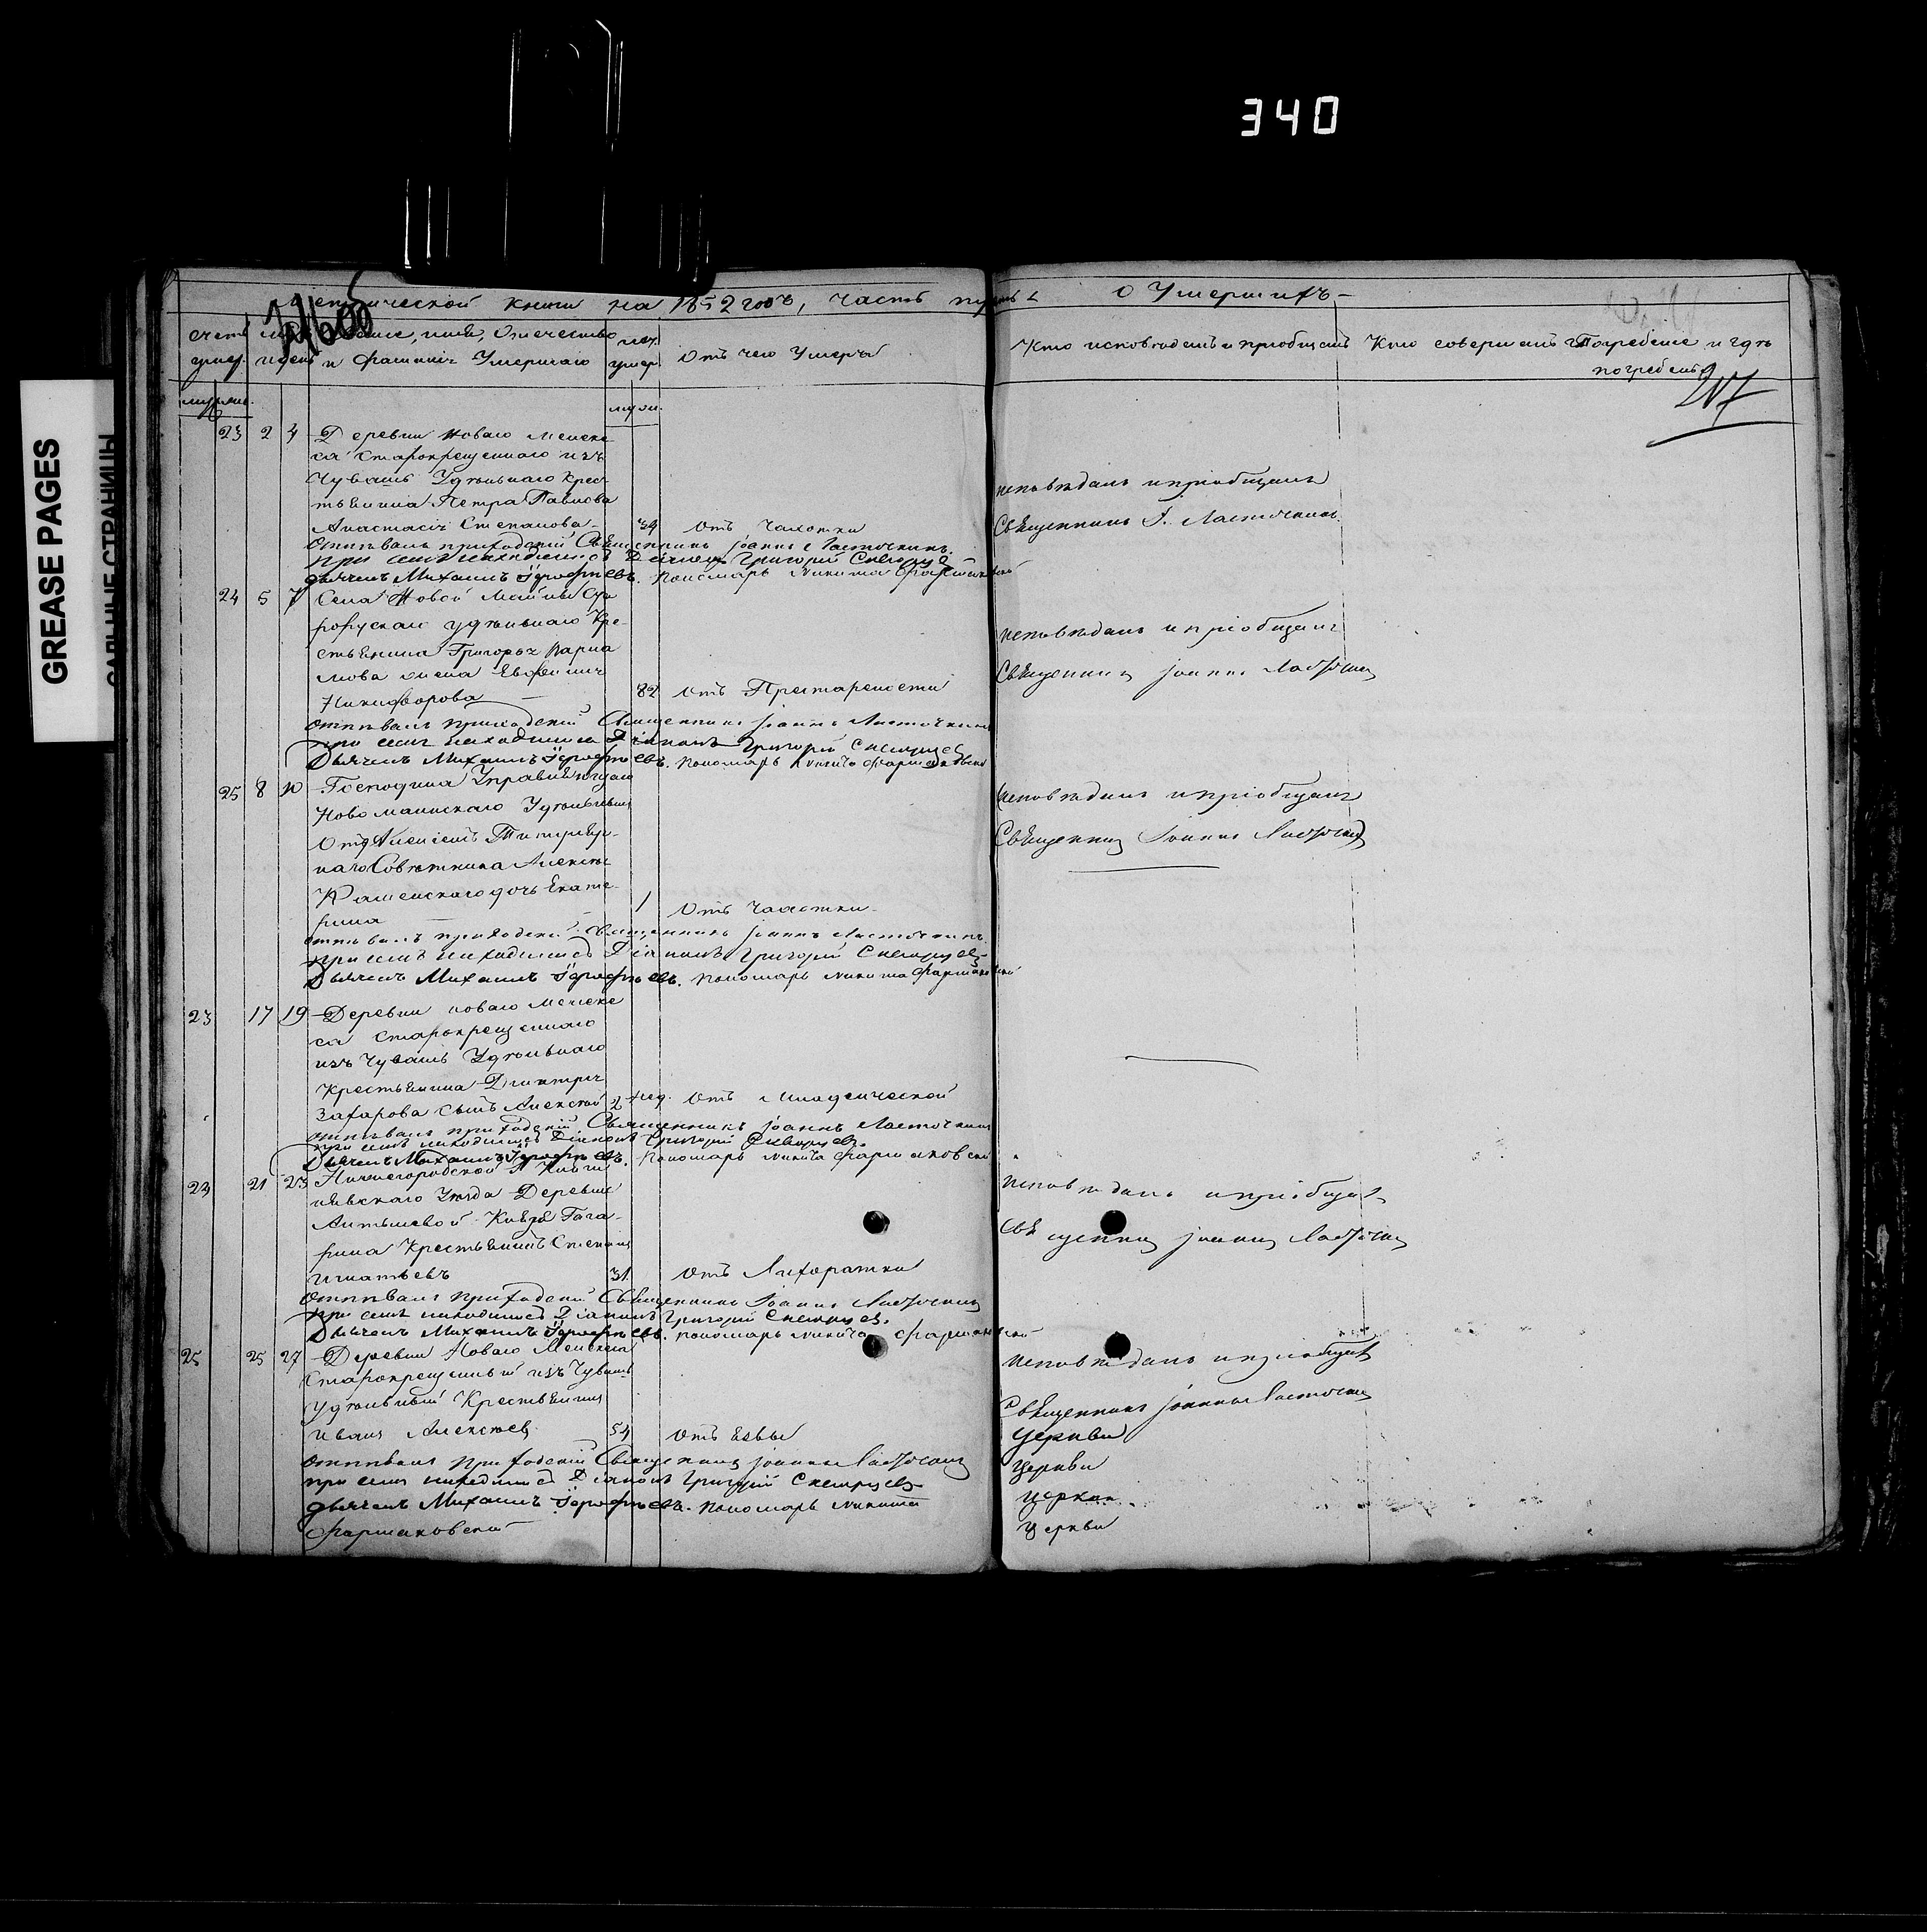 340
GREASE PAGES
САЛЬНЫЕ СТРАНИЦЫ
Метрической книги на 1852 годъ, часть третья о Умершихъ
счетъ умер.
званіе, имя, Отечество и фамилія Умершаго
лѣт. умер.
Отъ чего Умерли
Кто исповѣдалъ и пріобщалъ
Кто совершалъ Погребеніе и гдѣ
погребены
207
23 2 4 Деревни Новаго Мелеке
са Старокрещеннаго изъ
Чувашъ Удѣльнаго Крес
тьянина Петра Павлова
Анастасія Степанова 39 Отъ Чахотки
исповѣдалъ и пріобщалъ
Священникъ І. Ласточкинъ
Отпѣвалъ приходскій Священникъ Іоаннъ Ласточкинъ.
при семъ находились Діаконъ Григорій Скворцовъ
дьячекъ Михаилъ Ерофѣевъ. пономарь Никита Фармаковской
24 5 7 Села Новой Майны
Удѣльнаго Кре
стьянина Григорья Варла
мова жена Евфимія
Никифорова 82 Отъ Престарелости
исповѣдалъ и пріобщалъ
Священникъ Іоаннъ Ласточкинъ
Отпѣвалъ приходскій Священникъ Іоаннъ Ласточкинъ
при семъ находились Діаконъ Григорій Скворцовъ
Дьячекъ Михаилъ Ерофѣевъ. пономарь Никита Фармаковской
25 8 10 Господина Управляющаго
Новомайнскаго Удѣльнымъ
Отдѣленіемъ Титуляр-
наго Совѣтника Алексѣя
дочь Екате-
рина 1 Отъ Чахотки
исповѣдалъ и пріобщалъ
Священникъ Іоаннъ Ласточкинъ
отпѣвалъ приходской Священникъ Іоаннъ Ласточкинъ.
при семъ находились Діаконъ Григорій Скворцовъ
Дьячекъ Михаилъ Ерофѣевъ. пономарь Никита Фармаковской
23 17 19 Деревни новаго Мелеке
са Старокрещеннаго
изъ Чувашъ Удѣльнаго
Крестьянина Димитрія
Захарова сынъ Алексѣй 2 нед. Отъ Младенческой
отпѣвалъ приходскій Священникъ Іоаннъ Ласточкинъ
при семъ находились Діаконъ Григорій Скворцовъ.
Дьячекъ Михаилъ Ерофѣевъ. пономарь Никита Фармаковской
24 21 23 Нижегородской Г. Княги
нинскаго Уѣзда Деревни
Князя Гага-
рина Крестьянинъ Степанъ
Игнатьевъ 31 Отъ Лихорадки
исповѣдалъ и пріобщалъ
Священникъ Іоаннъ Ласточкинъ
Отпѣвалъ приходскій Священникъ Іоаннъ Ласточкинъ
при семъ находились Діаконъ Григорій Скворцовъ.
Дьячекъ Михаилъ Ерофѣевъ. пономарь Никита Фармаковской
25 25 27 Деревни Новаго Мелекеса
Старокрещеный изъ Чувашъ
Удѣльный Крестьянинъ
Иванъ Алексѣевъ 54 Отъ Язвы
исповѣдалъ и пріобщалъ
Священникъ Іоаннъ Ласточкинъ
отпѣвалъ приходскій Священникъ Іоаннъ Ласточкинъ
при семъ находились Діаконъ Григорій Скворцовъ
дьячекъ Михаилъ Ерофѣевъ. пономарь Никита
Фармаковской
Церкви
Церкви
Церкви
Церкви